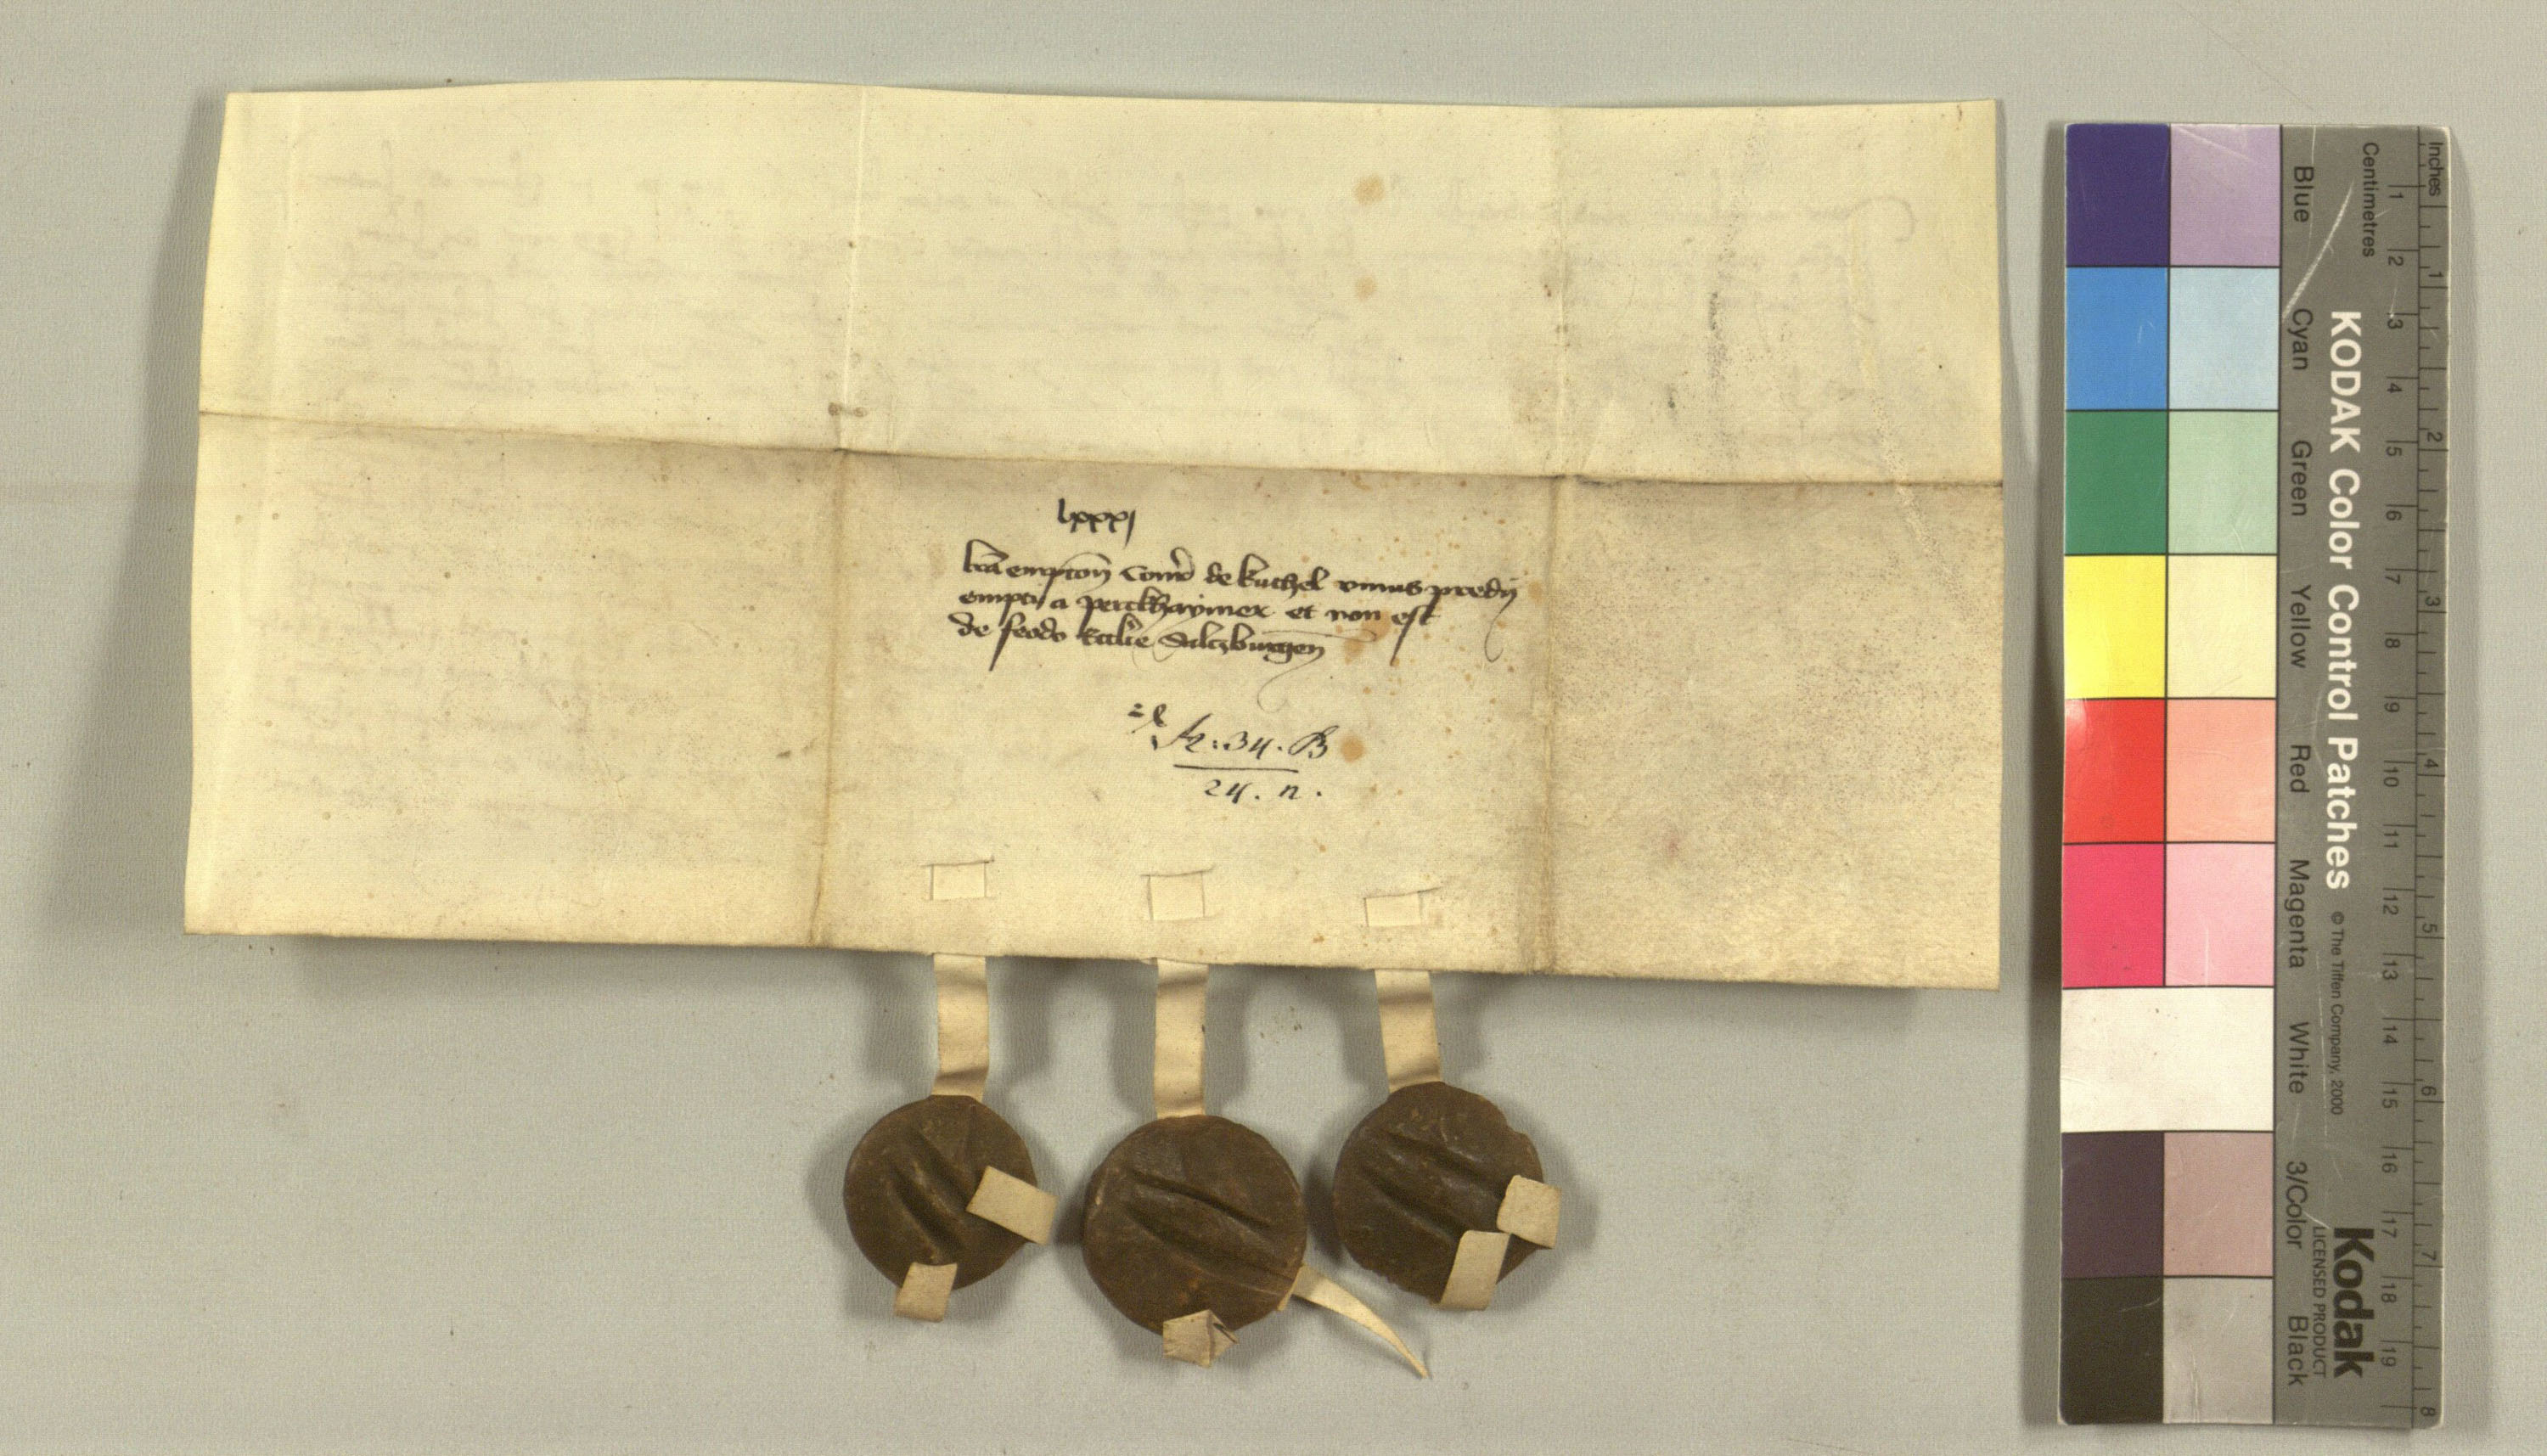 lxxxj
lr̄a empton̄ Conr̄ de kuchel vnius predij
empti a perckhaymer et non est
de feodo Eccli̅e Salczburgen̄
N: 34. B
24. n.
Inches
Centimetres
1 2 3 4 5 6 7 8 9 10 11 12 13 14 15 16 17 18 19
1 2 3 4 5 6 7 8
KODAK Color Control Patches © The Tiffen Company, 2000 Kodak
LICENSED PRODUCT
Blue Cyan Green Yellow Red Magenta White 3/Color Black